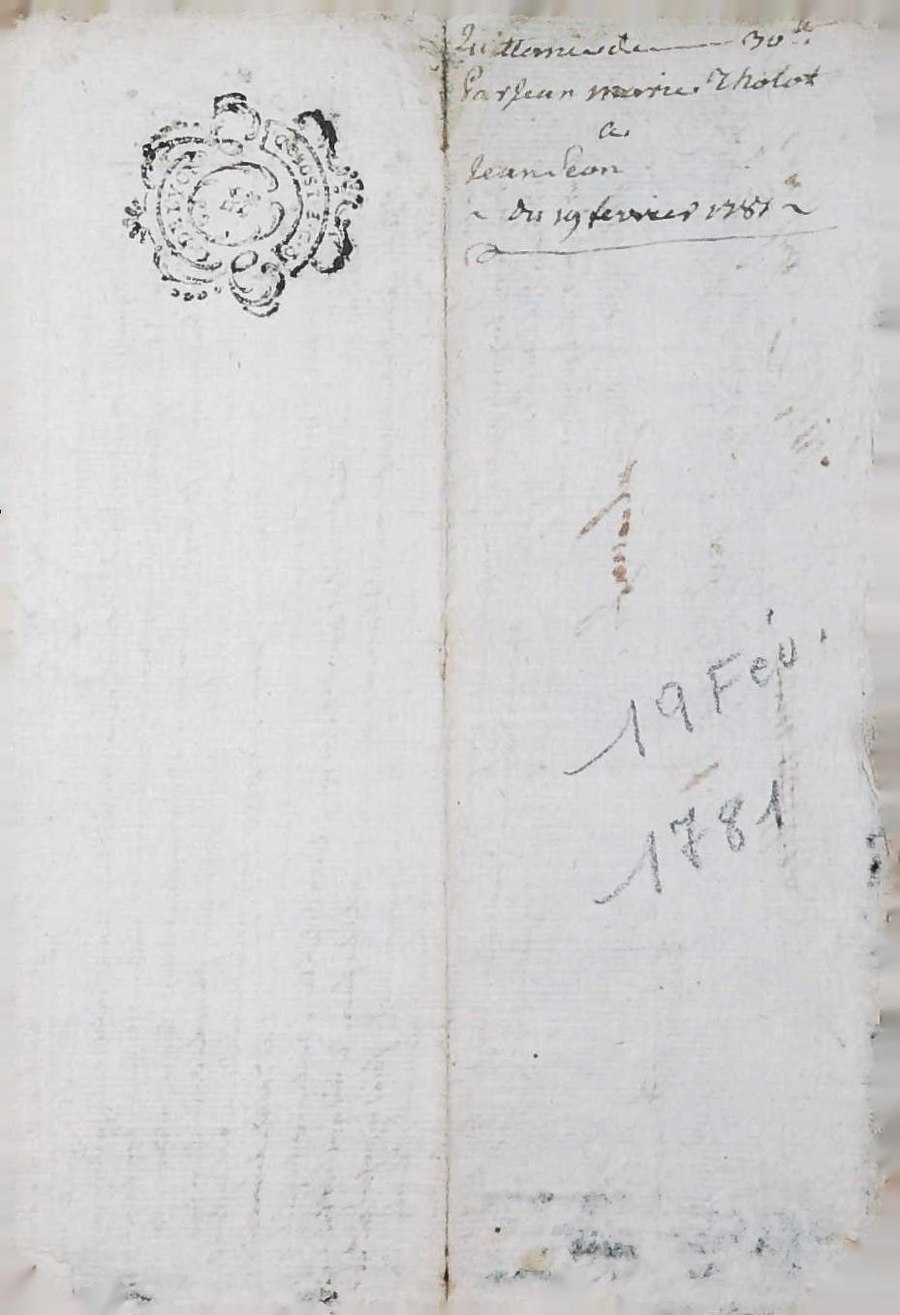 Quittance de 30 ₶
Par Jean marie Tholot
a
Jean Seon
~ Du 19 fevrier 1781 ~
19 Fév.
1781